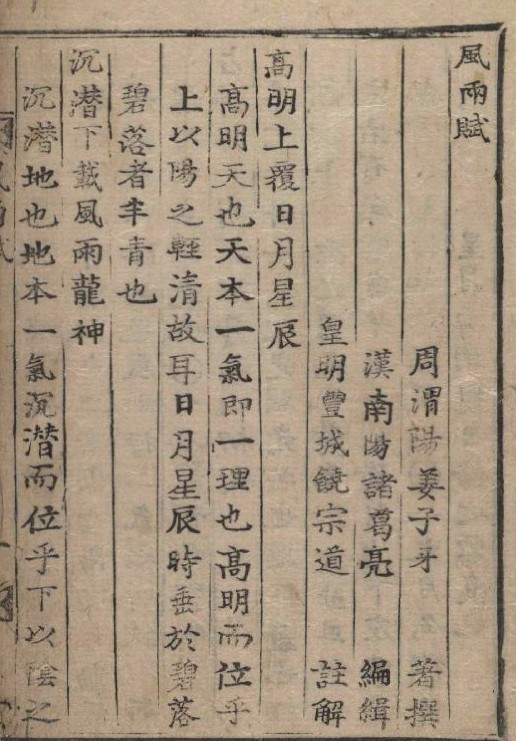 風雨賦
周渭陽姜子牙 著撰
漢南陽諸葛亮 編緝
皇明豐城饒宗道 註解
高明上覆日月星辰
高明天也天本一氣即一理也高明而位乎
上以陽之輕清故耳日月星辰時垂於碧落
碧落者丰青也
沉潜下載風雨龍神
沉潜地也地本一氣沉潜而位乎下以陰之